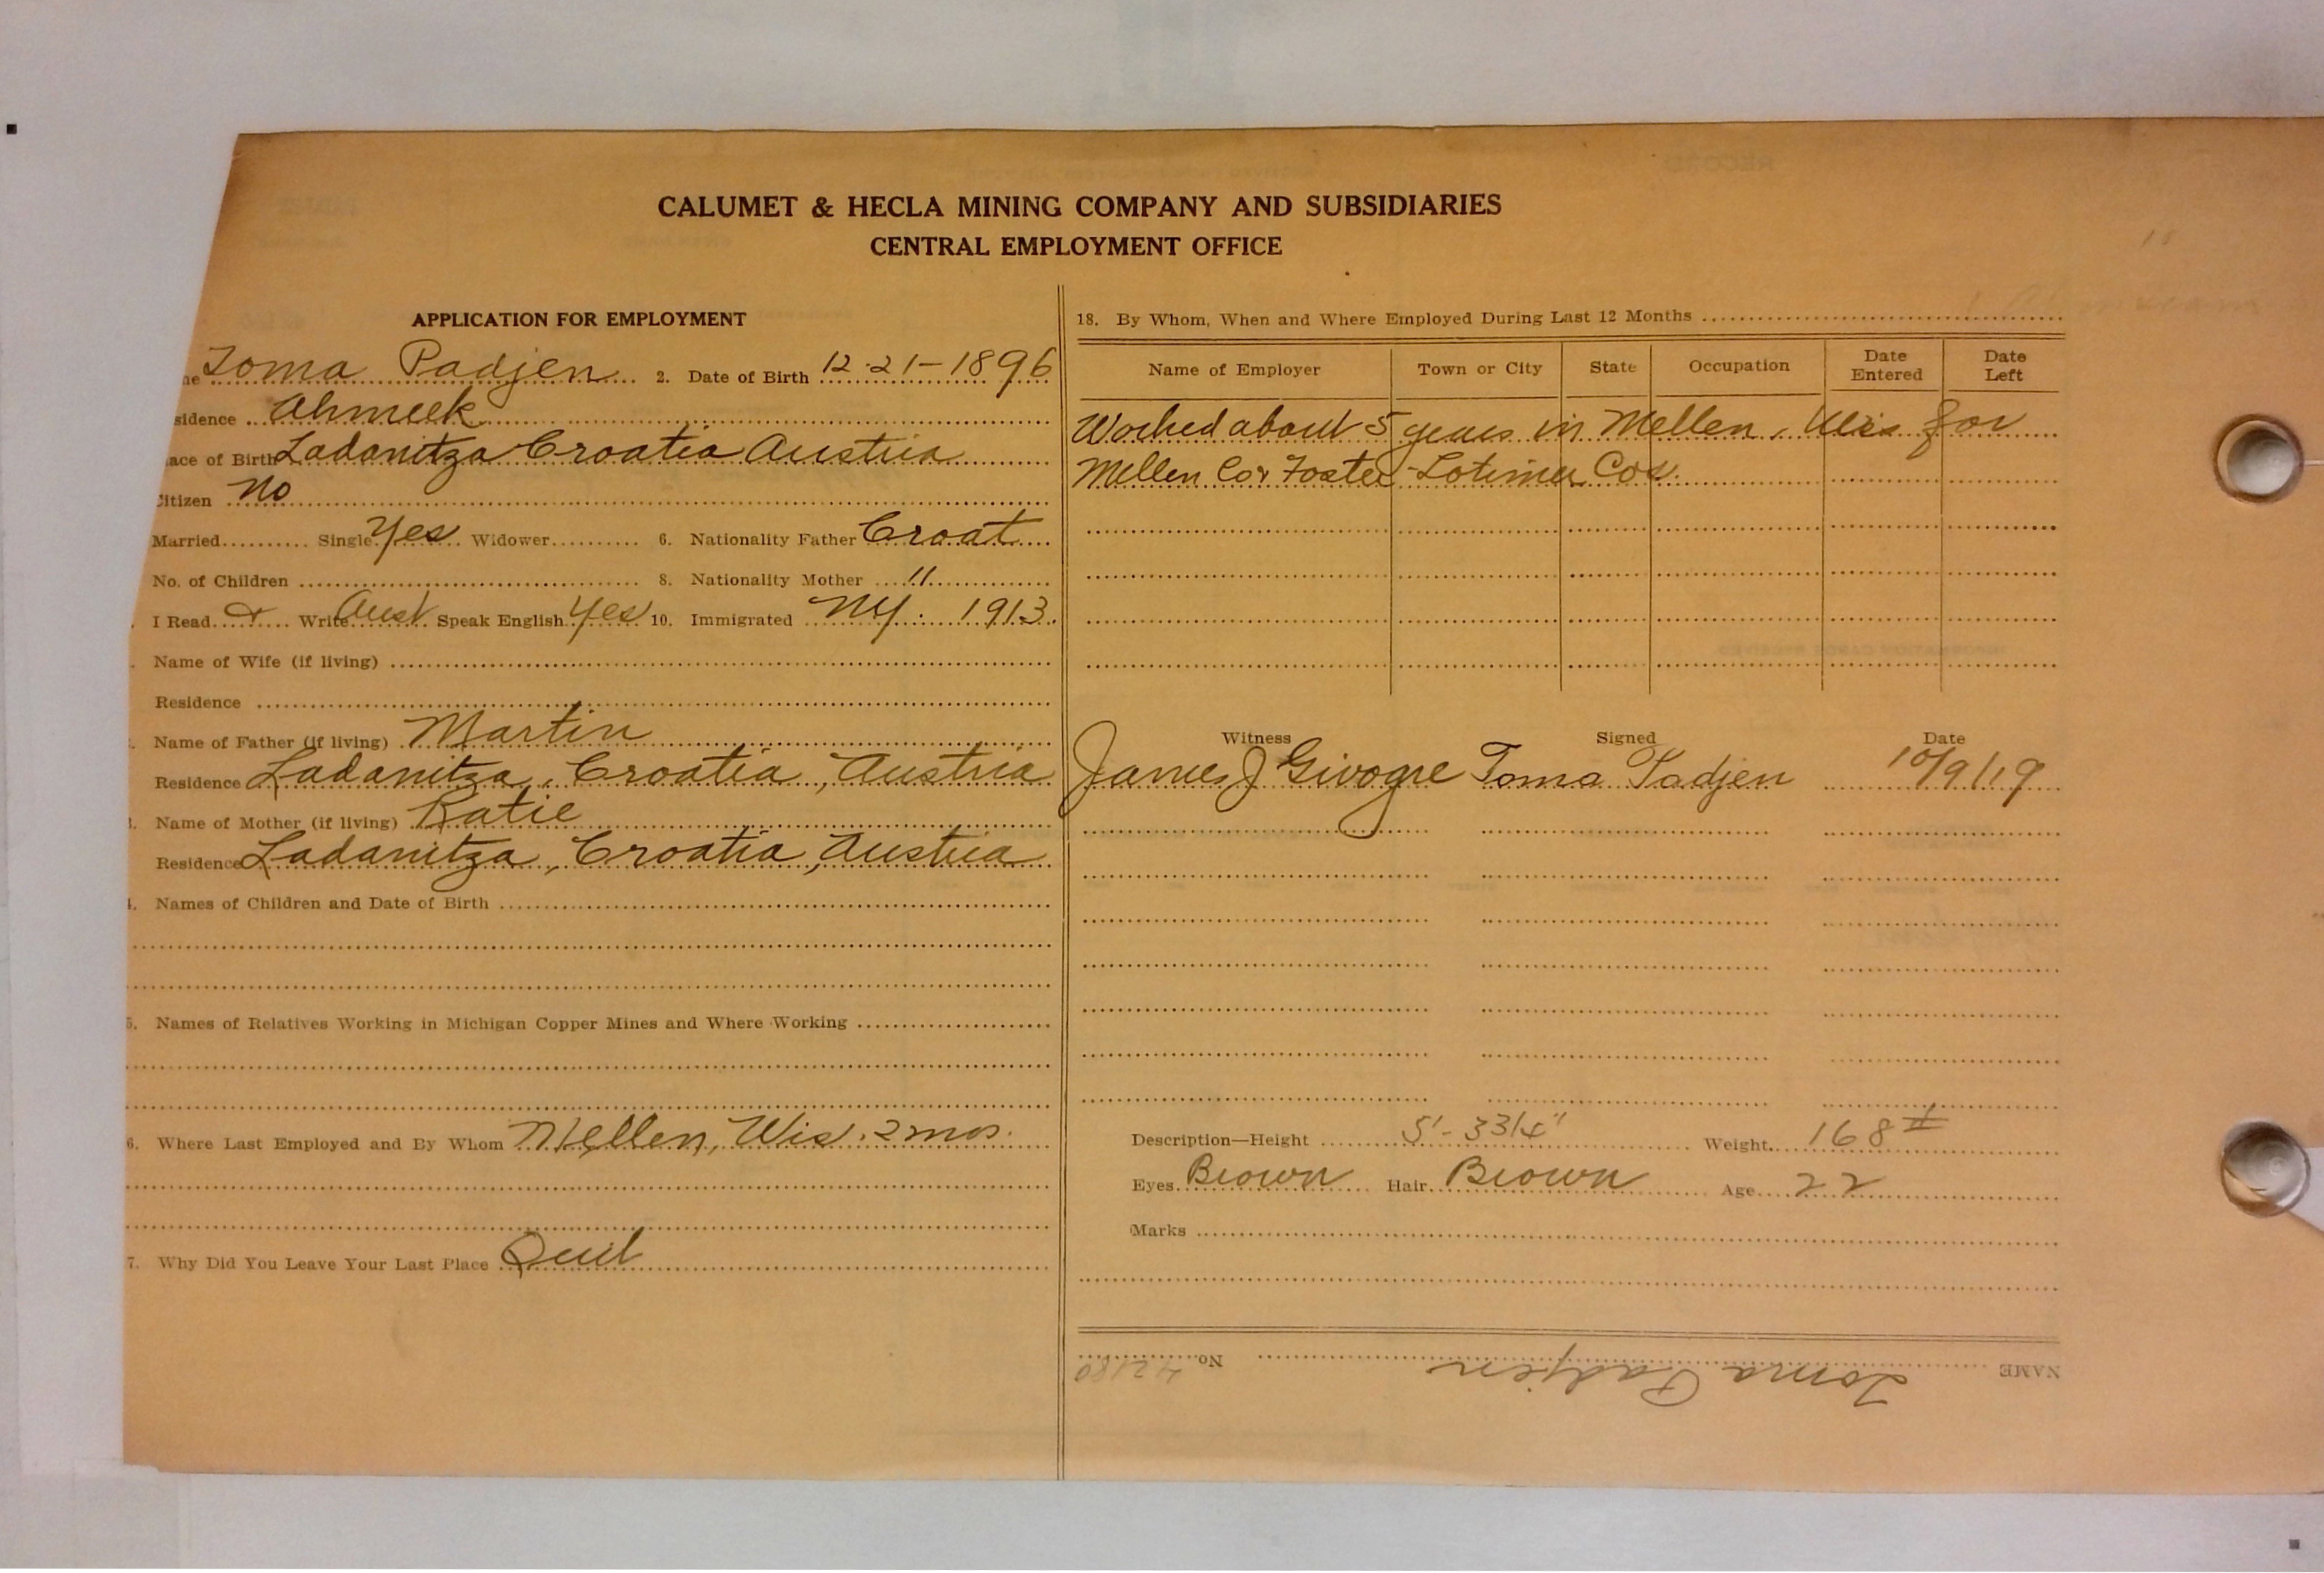 CALUMET & HECLA MINING COMPANY AND SUBSIDIARIES
CENTRAL EMPLOYMENT OFFICE
APPLICATION FOR EMPLOYMENT
ne Toma Padjen 2. Date of Birth 12-21-1896
sidence Ahmeek
ace of Birth Ladanitza Croatia Austria
Citizen No
Married Single Yes Widower 6. Nationality Father Croat
No. of Children 8. Nationality Mother "
I Read & Write Aust Speak English Yes 10. Immigrated NY. 1913
Name of Wife (if living)
Residence
Name of Father (if living) Martin
Residence Ladanitza, Croatia, Austria
Name of Mother (if living) Katie
Residence Ladanitza, Croatia, Austria
4. Names of Children and Date of Birth
5. Names of Relatives Working in Michigan Copper Mines and Where Working
6. Where Last Employed and By Whom Mellen, Wis. 2 mos.
7. Why Did You Leave Your Last Place Quit
18. By Whom, When and Where Employed During Last 12 Months
Name of Employer Town or City State Occupation Date Entered Date Left
Worked about 5 years in Mellen, Wis for
Mellen Co & Foster-Lotimer Cos.
Witness Signed Date
James J Toma Padjen 10/9/19
Description—Height 5'-3 3/4" Weight 168#
Eyes Brown Hair Brown Age 22
Marks
NAME Toma Padjen No. 42180